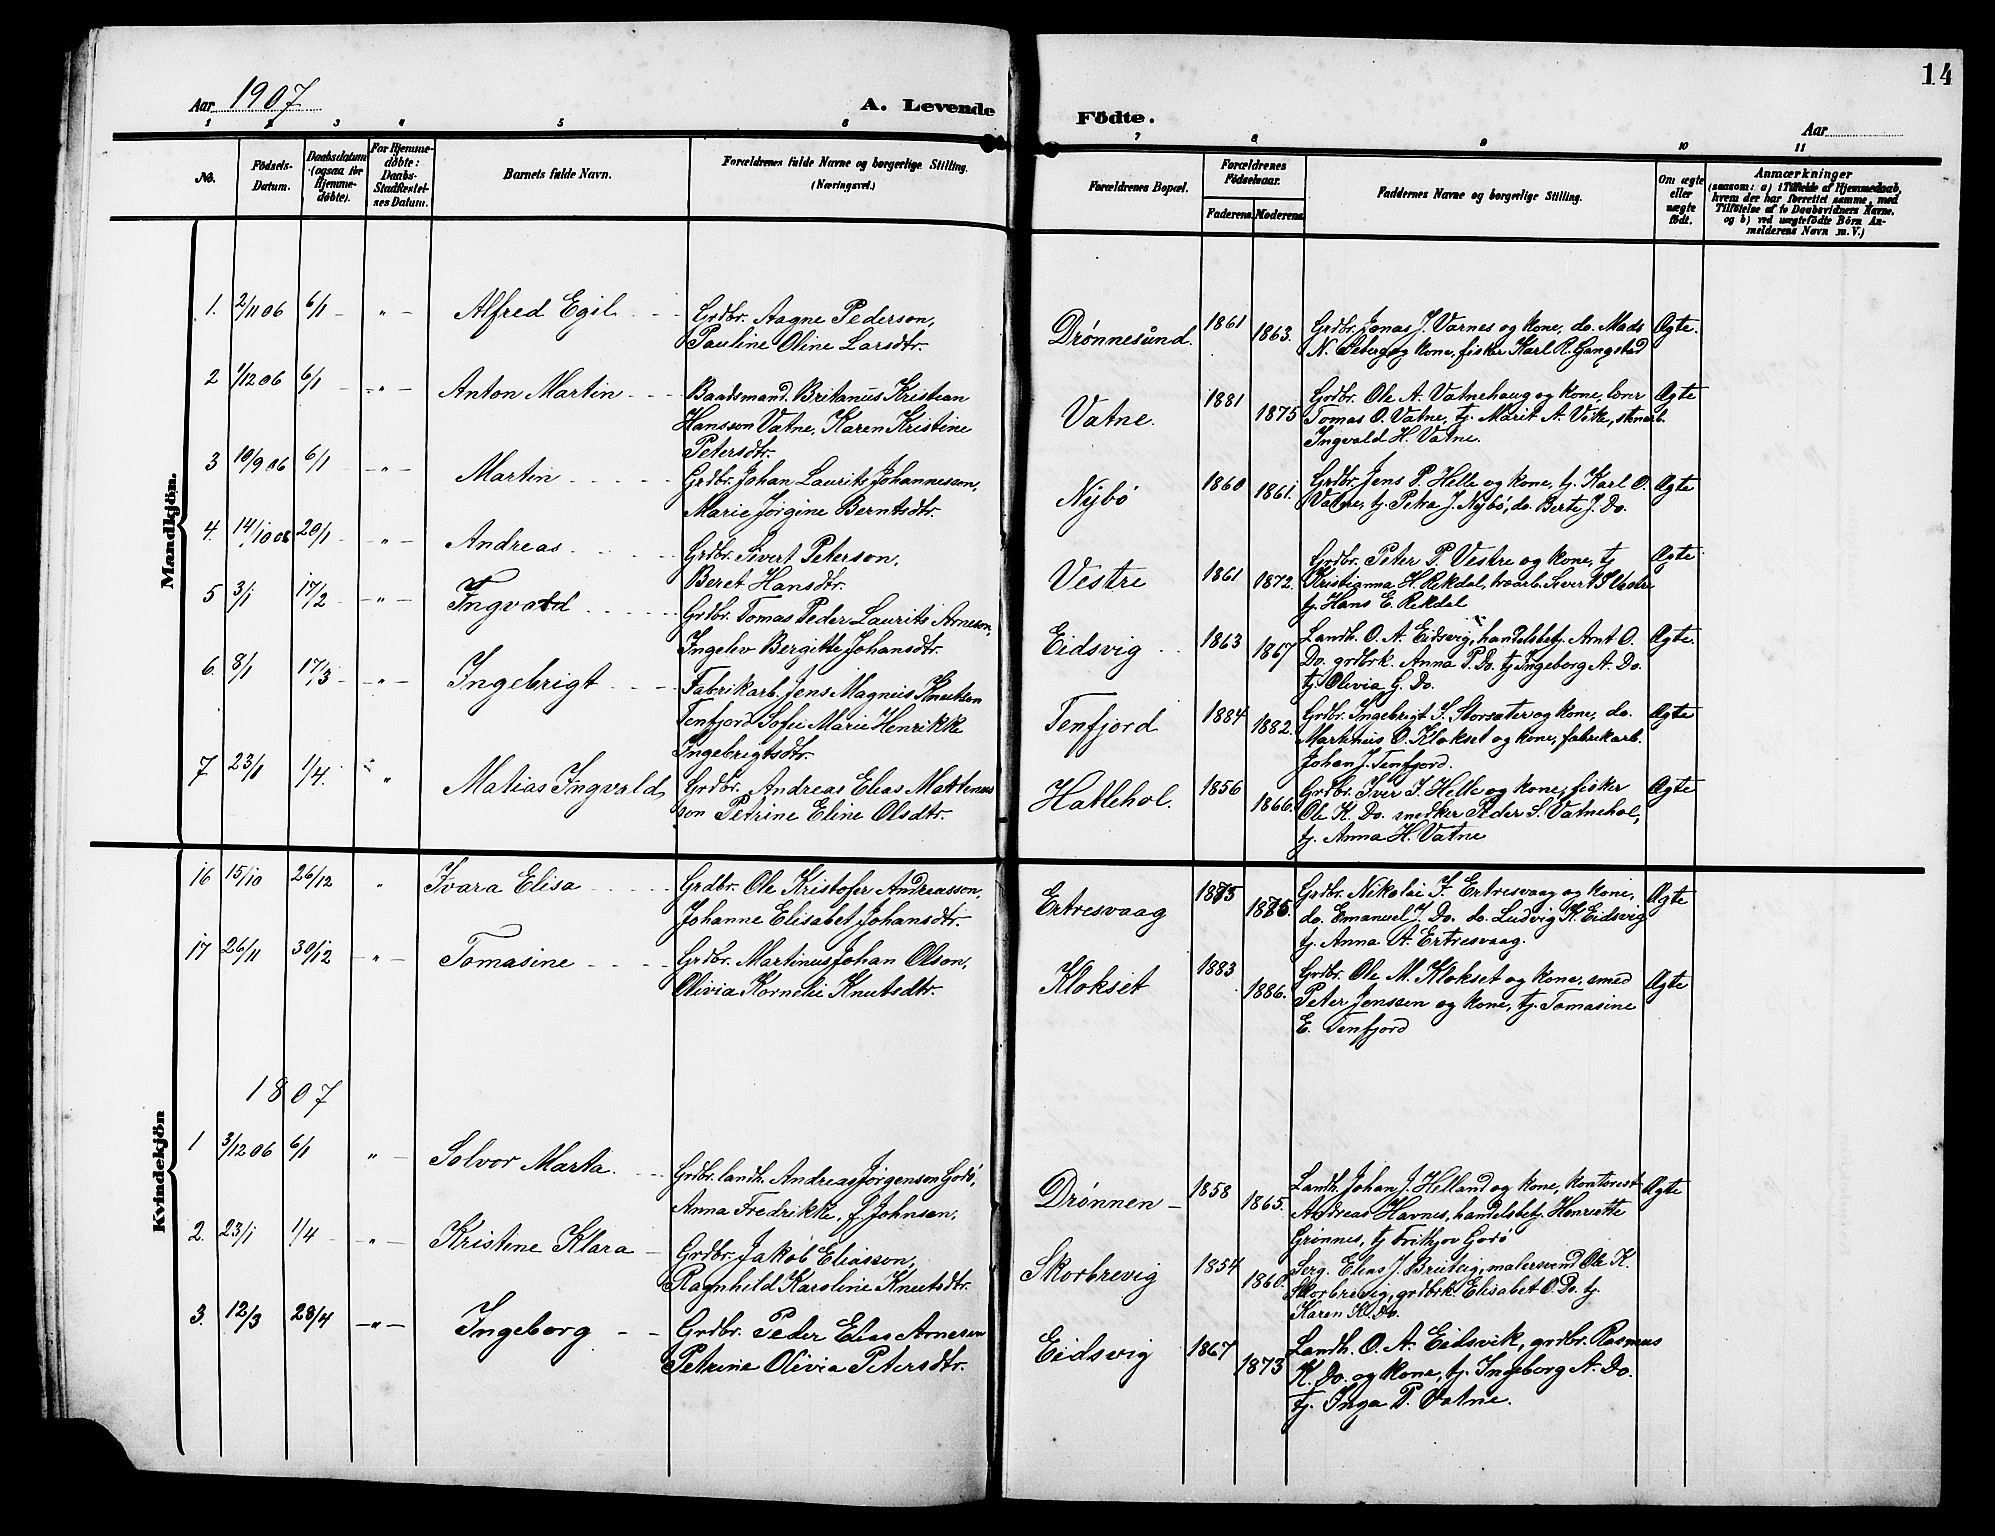 14
Aar 1907
A. Levende Födte.
Aar
1 2 3 4 5 6 7 8 9 10 11
No.
Födsels-Datum.
Daabsdatum (ogsaa for Hjemmedøbte).
For Hjemmedøbte: Daabs-Stadfæstelses Datum.
Barnets fulde Navn.
Forældrenes fulde Navne og borgerlige Stilling. (Næringsvei.)
Forældrenes Bopæl.
Forældrenes Födselsaar.
Faderens. Moderens.
Faddernes Navne og borgerlige Stilling.
Om ægte eller uægte født.
Anmærkninger
(saasom: a) i Tilfælde af Hjemmedaab, hvem der har forrettet samme, med Tilföielse af to Daabsvidners Navne, og b) ved uægtefödte Börn Anmelderens Navn m. V.)
Mandkjön.
1. 2/11 06 6/1 - " - Alfred Egil Grdbr. Aagne Pederson, Drønnesund. 1861 1863. Grdbr. Jonas J. Varnes og kone, do. Mads Ægte.
Pauline Oline Larsdtr. N. Seberg og kone, fisker Karl R. Gangstad
2 1/12 06 6/1 - " - Anton Martin Baadsmand. Britanus Kristian Vatne. 1881 1875 Grdbr. Ole A. Vatnehaug og kone, lærer Ægte
Hansson Vatne, Karen Kristine Tomas O. Vatne, tj. Marit A. Vike,
Petersdtr. Ingvald H. Vatne.
3 10/9 06 6/1 - " - Martin Grdbr. Johan Laurits Johannesson, Nybö 1860 1861. Grdbr. Jens P. Helle og kone, tj. Karl O. Ægte
Marie Jørgine Berntsdtr. Vatne, tj. Petra J. Nybö, do. Berte J. Do.
4. 14/10 06 20/1 - " - Andreas Grdbr. Sivert Peterson, Vestre 1861 1872. Grdbr. Peter P. Vestre og kone, tj Ægte
Beret Hansdtr. Kristianna H. Rekdal, Sivert S Vestre
tj. Hans E. Rekdal
5 3/1 17/2 - " - Ingvald Grdbr. Tomas Peder Laurits Arneson, Eidsvig 1863 1867 Landh. O. A. Eidsvig, handelsbetj. Arnt O. Ægte
Ingelev Bergitte Johansdtr. Do. grdbrk. Anna P. Do. tj Ingeborg A. Do.
tj. Olivia G. Do.
6. 8/1 17/3 - " - Ingebrigt Fabrikarb. Jens Magnus Knutsen Tenfjord 1884 1882. Grdbr. Ingebrigt S. Storsæter og kone, do. Ægte
Tenfjord Sofie Marie Henrikke Martinus O. Klokset og kone, fabrikarb.
Ingebrigtsdtr. Johan J. Tenfjord.
7. 23/1 1/4. " Matias Ingvald Grdbr. Andreas Elias Martinus Hatlehol. 1856 1866. Grdbr. Iver I. Helle og kone, fisker Ægte
son Petrine Eline Olsdtr. Ole K. Do. snedker Peder S. Vatnehol,
tj. Anna H. Vatne
Kvindekjön
16 15/10 26/12 " Ivara Elisa Grdbr. Ole Kristofer Andreasson, Ertresvaag 1875 Grdbr. Nikolai I. Ertresvaag og kone, Ægte
Johanne Elisabet Johansdtr. do. Emanuel J. Do. do. Ludvig K. Eidsvig
tj. Anna A. Ertresvaag.
17 26/11 30/12 - " - Tomasine Grdbr. Martinus Johan Olson, Klokset 1883 1886. Grdbr. Ole M. Klokset og kone, smed Ægte
Olivia Kornelie Knutsdtr. Peter Jenssen og kone, tj. Tomasine
E. Tenfjord
1807
1 3/12 06 6/1 " - Solvor Marta. Grdbr. landh. Andreas Jørgenson Godö, Drønnen - 1858 1865. Landh. Johan J. Helland og kone, kontorist Ægte
Anna Fredrikke, f. Johnsen. Andreas Havnes, handelsbetj. Henriette
Grønnes, tj Fritjov Godö
2. 23/1 1/4 - " - Kristine Klara Grdbr. Jakob Eliasson, Skorbrevig 1854 1860. Serg. Elias J. malersvend Ole K.
Ragnhild Karoline Knutsdtr. Skorbrevig, grdbrk. Elisabet O. Do. tj.
Karen K. Do.
3. 12/3 28/4 - " - Ingeborg Grdbr. Peder Elias Arnesen Eidsvig 1867 1873 Landh. O. A. Eidsvik, grdbr. Rasmus
Petrine Olivia Petersdtr. K. Do. og kone, tj. Ingeborg A. Do.
tj. Inga P. Vatne.